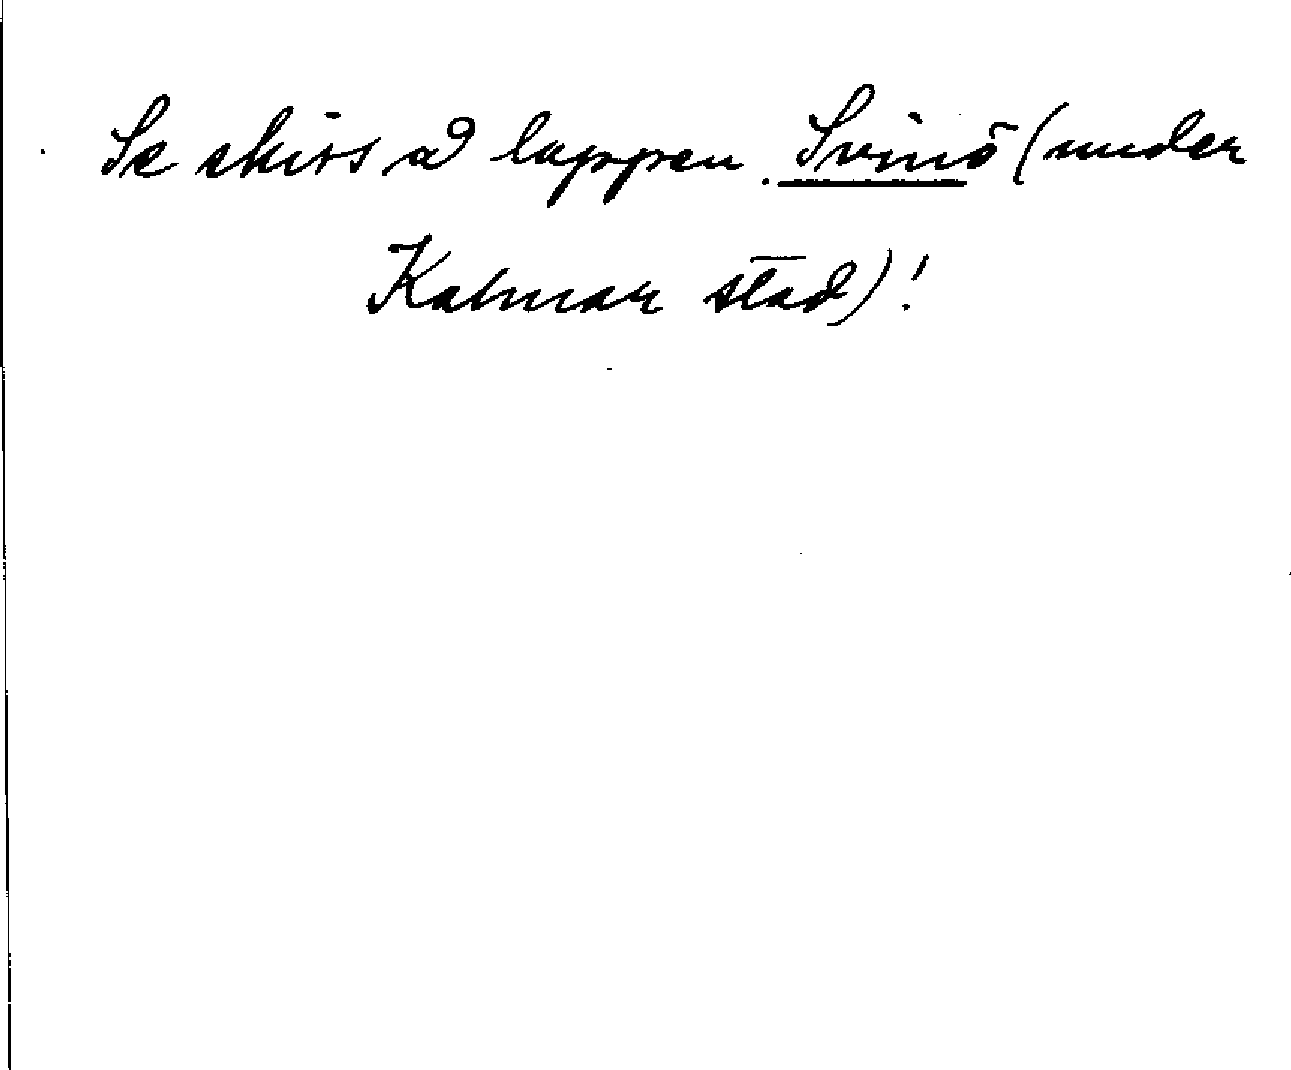 Se skiss å lappen. Svinö (under
Kalmar stad)!